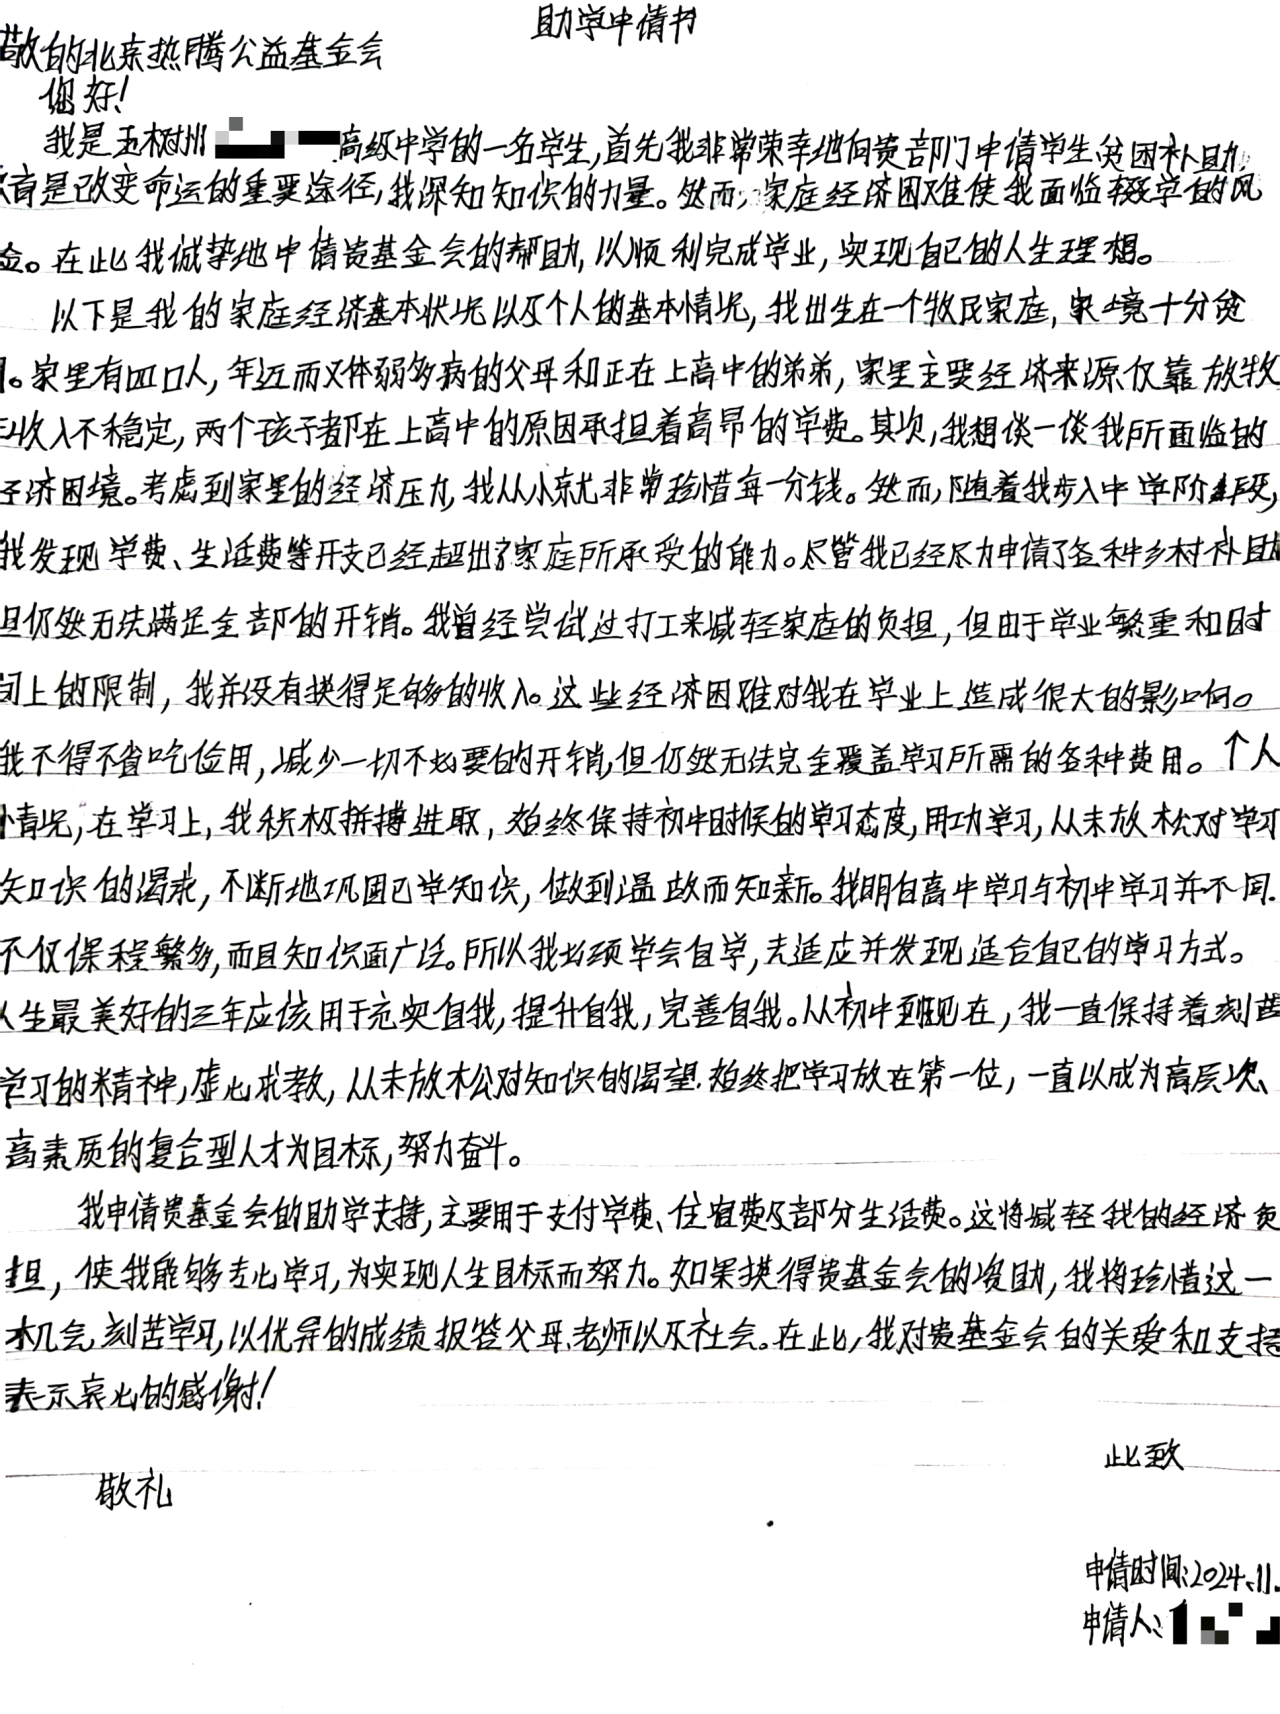 助学申请书
敬的北京热腾公益基金会
您好!
我是玉树州 高级中学的一名学生,首先我非常荣幸地向贵部门申请学生贫困补助
育是改变命运的重要途径,我深知知识的力量。然而,家庭经济困难使我面临辍学的风
险。在此我诚挚地申请贵基金会的帮助,以顺利完成学业,实现自己的人生理想。
以下是我的家庭经济基本状况以及个人的基本情况,我出生在一个牧民家庭,家境十分贫
。家里有四口人,年迈而又体弱多病的父母和正在上高中的弟弟,家里主要经济来源仅靠放牧
收入不稳定,两个孩子都在上高中的原因承担着高昂的学费。其次,我想谈一谈我所面临的
经济困境。考虑到家里的经济压力,我从小就非常珍惜每一分钱。然而,随着我步入中学阶段,
我发现学费、生活费等开支已经超出了家庭所承受的能力。尽管我已经尽力申请了各种乡村补助
但仍然无法满足全部的开销。我曾经尝试过打工来减轻家庭的负担,但由于学业繁重和时
间上的限制,我并没有获得足够的收入。这些经济困难对我在学业上造成很大的影响。
我不得不省吃俭用,减少一切不必要的开销,但仍然无法完全覆盖学习所需的各种费用。个人
情况,在学习上,我积极拼搏进取,始终保持初中时候的学习态度,用功学习,从未放松对学习
知识的渴求,不断地巩固已学知识,做到温故而知新。我明白高中学习与初中学习并不同.
不仅课程繁多,而且知识面广泛。所以我必须学会自学,去适应并发现适合自己的学习方式。
人生最美好的三年应该用于充实自我,提升自我,完善自我。从初中到现在,我一直保持着刻苦
学习的精神,虚心求教,从未放松对知识的渴望.始终把学习放在第一位,一直以成为高层次、
高素质的复合型人才为目标,努力奋斗。
我申请贵基金会的助学支持,主要用于支付学费、住宿费及部分生活费。这将减轻我的经济负
担,使我能够专心学习,为实现人生目标而努力。如果获得贵基金会的资助,我将珍惜这一
机会,刻苦学习,以优异的成绩报答父母、老师以及社会。在此,我对贵基金会的关爱和支持
表示衷心的感谢!
此致
敬礼
申请时间:2024.11.
申请人: